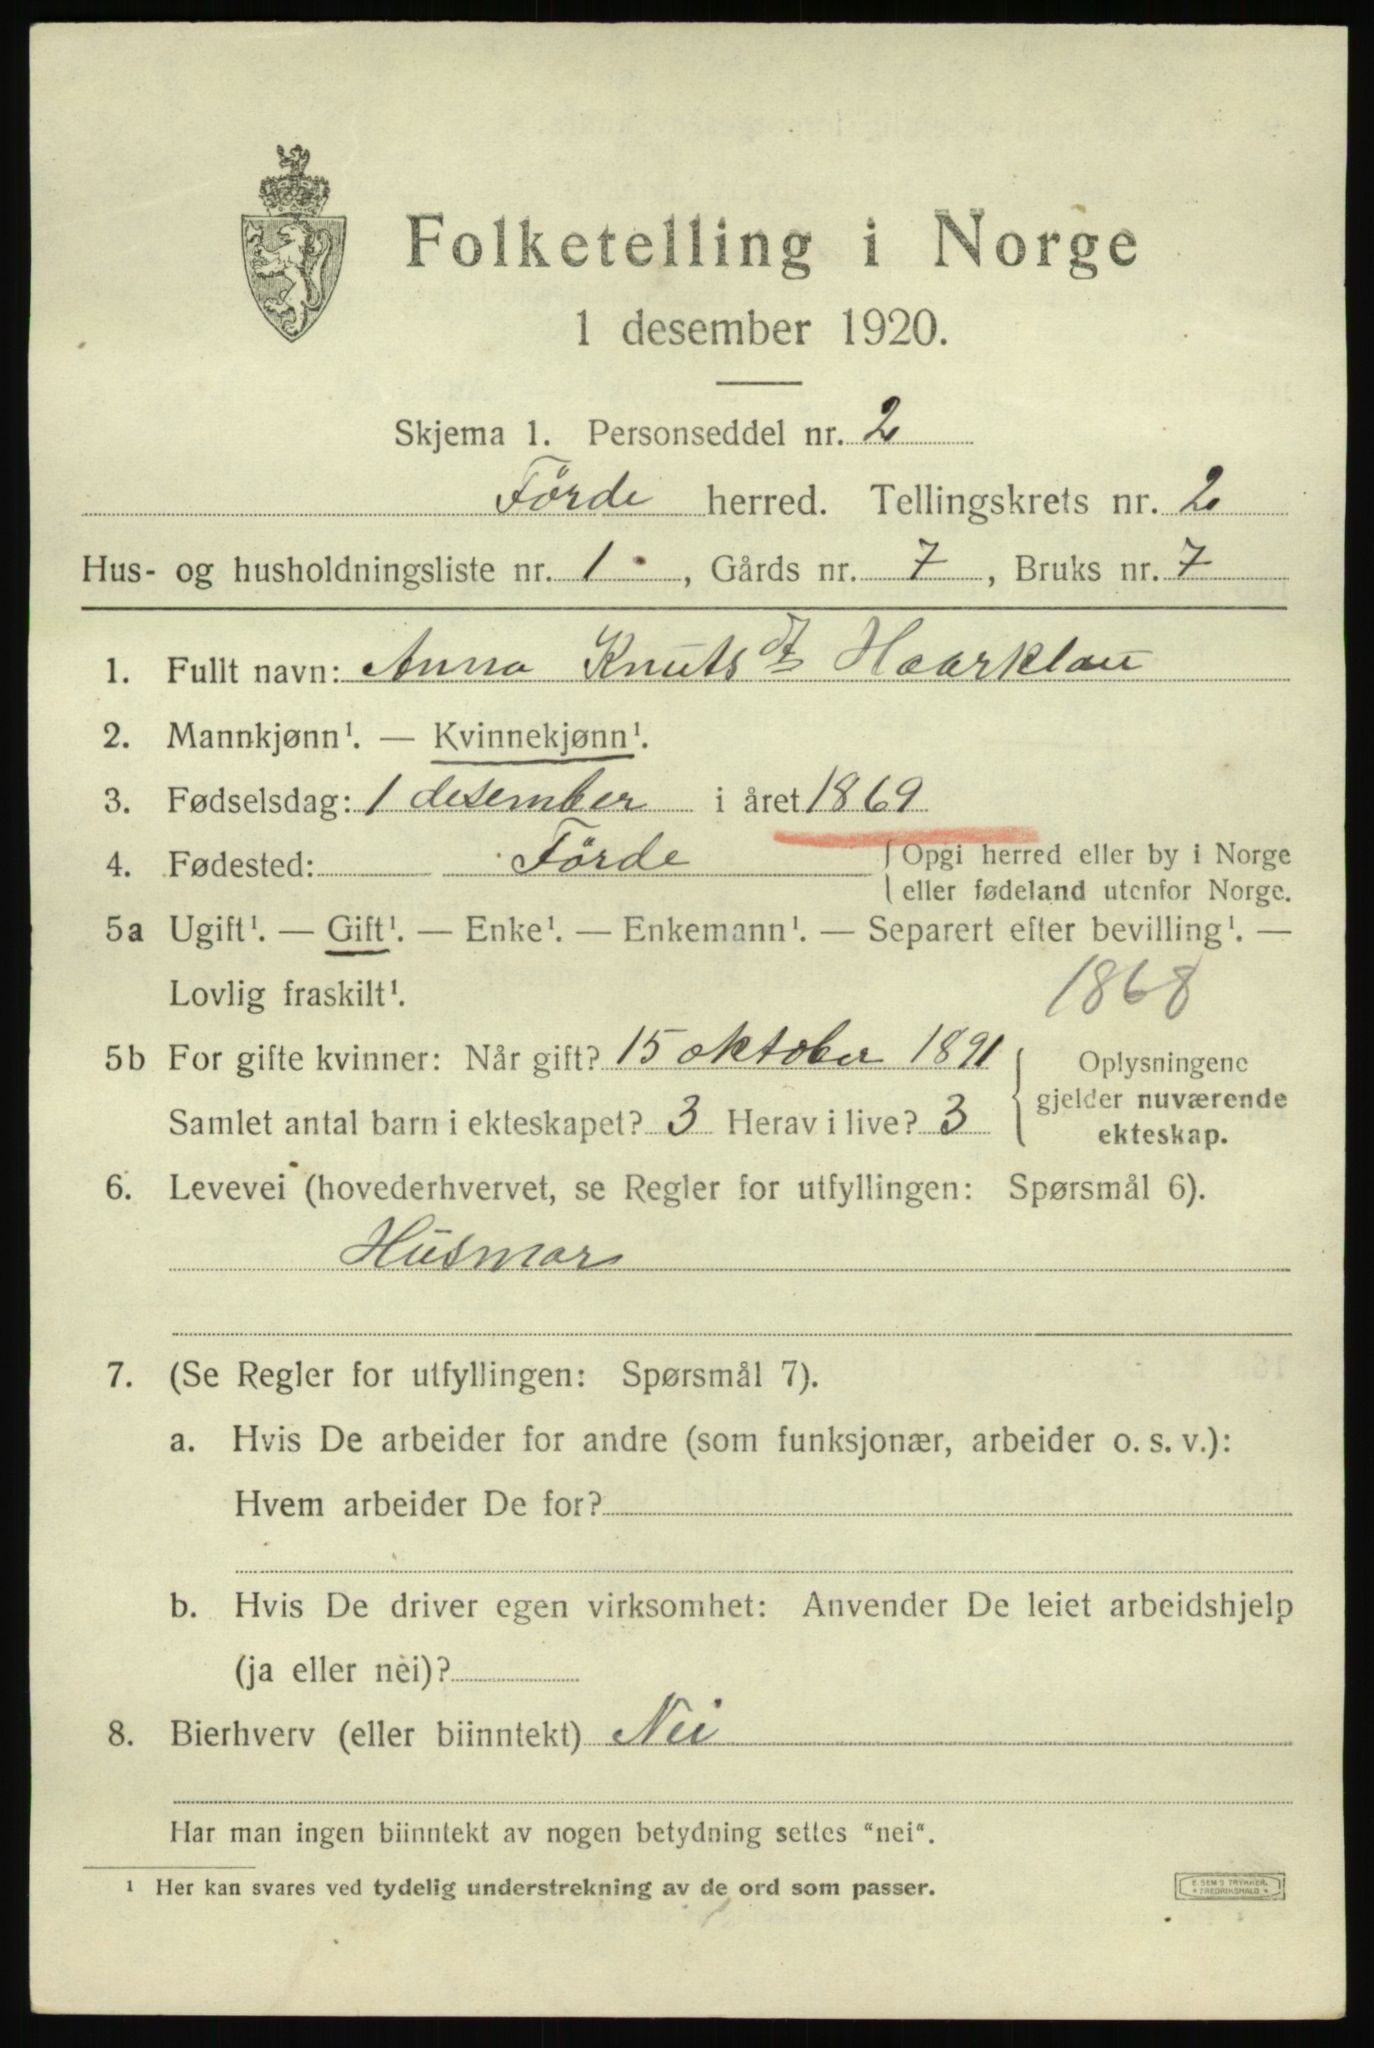 Folketelling i Norge
1 desember 1920.
Skjema 1. Personseddel nr. 2
Förde herred. Tellingskrets nr. 2
Hus- og husholdningsliste nr. 1, Gårds nr. 7, Bruks nr. 7
1. Fullt navn: Anna Knutsdt Haarklau
2. Mannkjønn¹. — Kvinnekjønn¹.
3. Fødselsdag: 1 desember i året 1869
4. Fødested: Förde { Opgi herred eller by i Norge
eller fødeland utenfor Norge.
5a Ugift¹. — Gift¹. — Enke¹. — Enkemann¹. — Separert efter bevilling¹. —
Lovlig fraskilt¹. 1868
5b For gifte kvinner: Når gift? 15 oktober 1891
Samlet antal barn i ekteskapet? 3 Herav i live? 3
Oplysningene
gjelder nuværende
ekteskap.
6. Levevei (hovederhvervet, se Regler for utfyllingen: Spørsmål 6).
Husmor
7. (Se Regler for utfyllingen: Spørsmål 7).
a. Hvis De arbeider for andre (som funksjonær, arbeider o. s. v.):
Hvem arbeider De for?
b. Hvis De driver egen virksomhet: Anvender De leiet arbeidshjelp
(ja eller nei)?
8. Bierhverv (eller biinntekt) Nei
Har man ingen biinntekt av nogen betydning settes "nei".
¹ Her kan svares ved tydelig understrekning av de ord som passer.
E. SEM'S TRYKKERI
FREDRIKSHALD